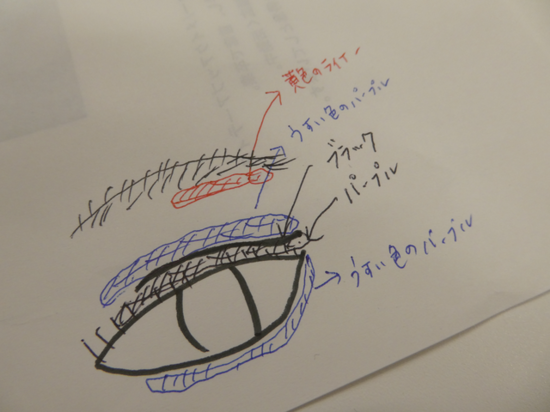 黄色のライナー
うすい色のパープル
ブラック
パープル
うすい色のパープル